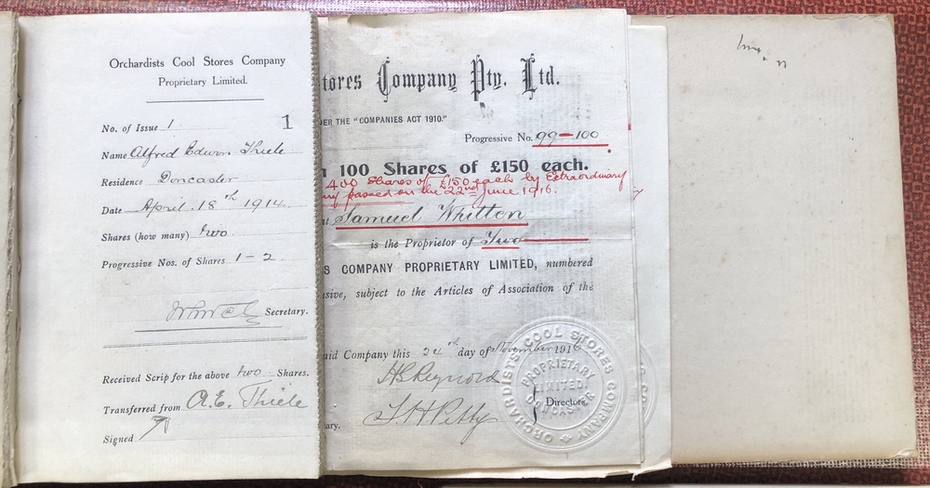 Orchardists Cool Stores Company
Proprietary Limited.
No. of Issue 1 1
Name Alfred Edwin Thiele
Residence Doncaster
Date April 18th 1914.
Shares (how many) two
Progressive Nos. of Shares 1-2
Secretary.
Received Scrip for the above two Shares.
Transferred from A.E. Thiele
Signed
Stores Company Pty. Ltd.
DER THE "COMPANIES ACT 1910."
Progressive No. 99-100
100 Shares of £150 each.
400 Shares of £150 each by Extraordinary
passed on the 22nd June 1916.
Samuel Whitten
is the Proprietor of Two
S COMPANY PROPRIETARY LIMITED, numbered
sive, subject to the Articles of Association of the
aid Company this 24th day of November 1916
H B Reynold
Directors.
T H Petty
ary.
ORCHARDISTS COOL STORES COMPANY
PROPRIETARY
LIMITED.
DONCASTER